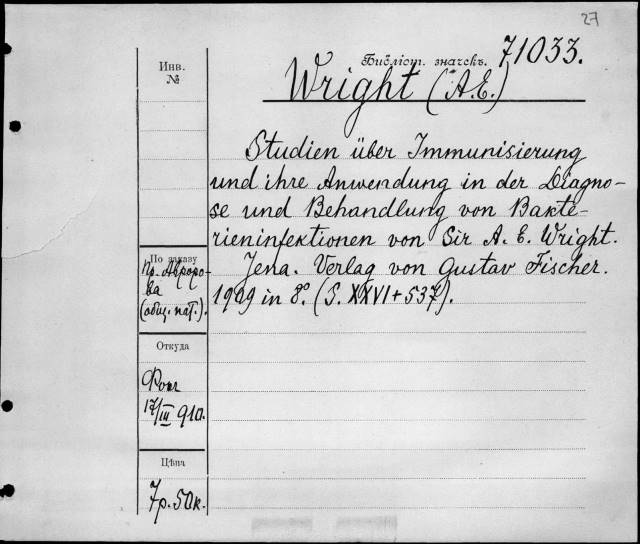 27
Инв.
№
Библіот. значекъ. 71033.
Wright (A.E.)
Studien über Immunisierung
und ihre Anwendung in der Diagno-
se und Behandlung von Bakte-
rieninfektionen von Sir A. E. Wright.
Jena. Verlag von Gustav Fischer.
1909 in 8°. (S. XXVI + 537).
По заказу
Пр. Авроро-
ва
(общ. пат.).
Откуда
17/III 910.
Цѣна
7р. 50к.